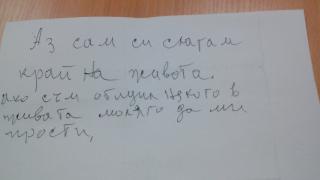 Аз сам си слагам
край на живота.
ако съм обидил някого в
живота моляго да ми
прости,